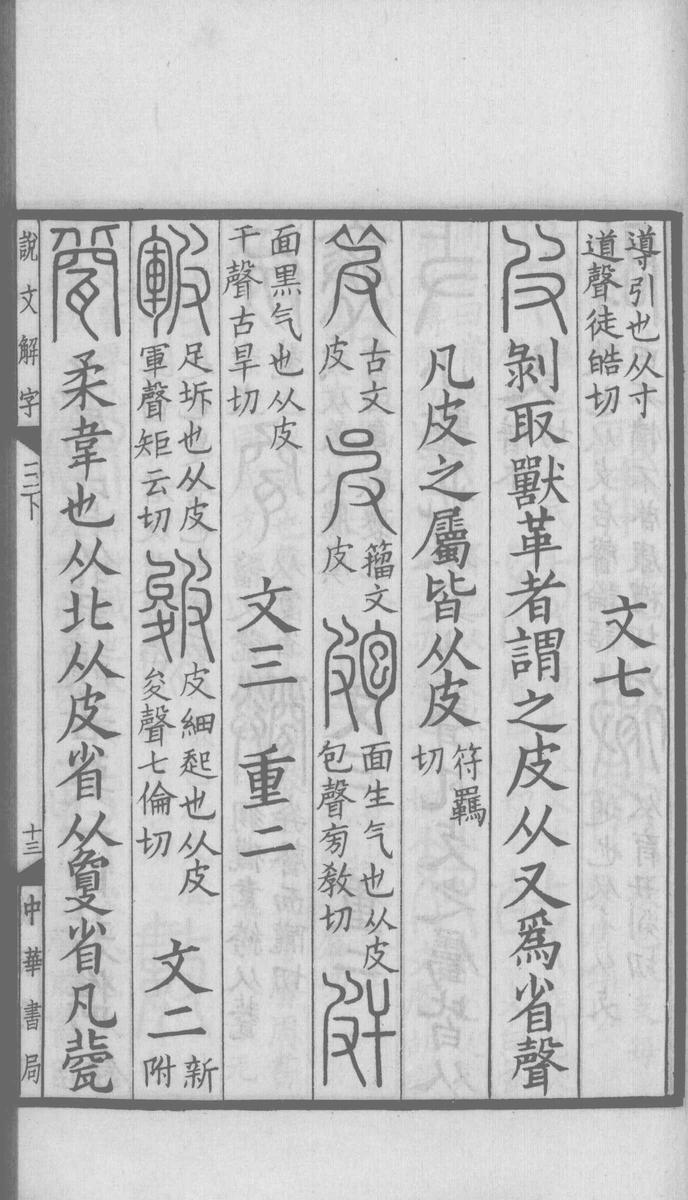 導引也从寸
道聲徒皓切
文七
皮剝取獸革者謂之皮从又爲省聲
凡皮之屬皆从皮符羈
切
𥬖古文
皮
𤿌籀文
皮
皰面生气也从皮
包聲㫄敎切
皯面黑气也从皮
干聲古旱切
文三 重二
皸足坼也从皮
軍聲矩云切
皴皮細起也从皮
夋聲七倫切
文二新
附
㼱柔韋也从北从皮省从夐省凡㼱
說文解字
三下
十三
中華書局